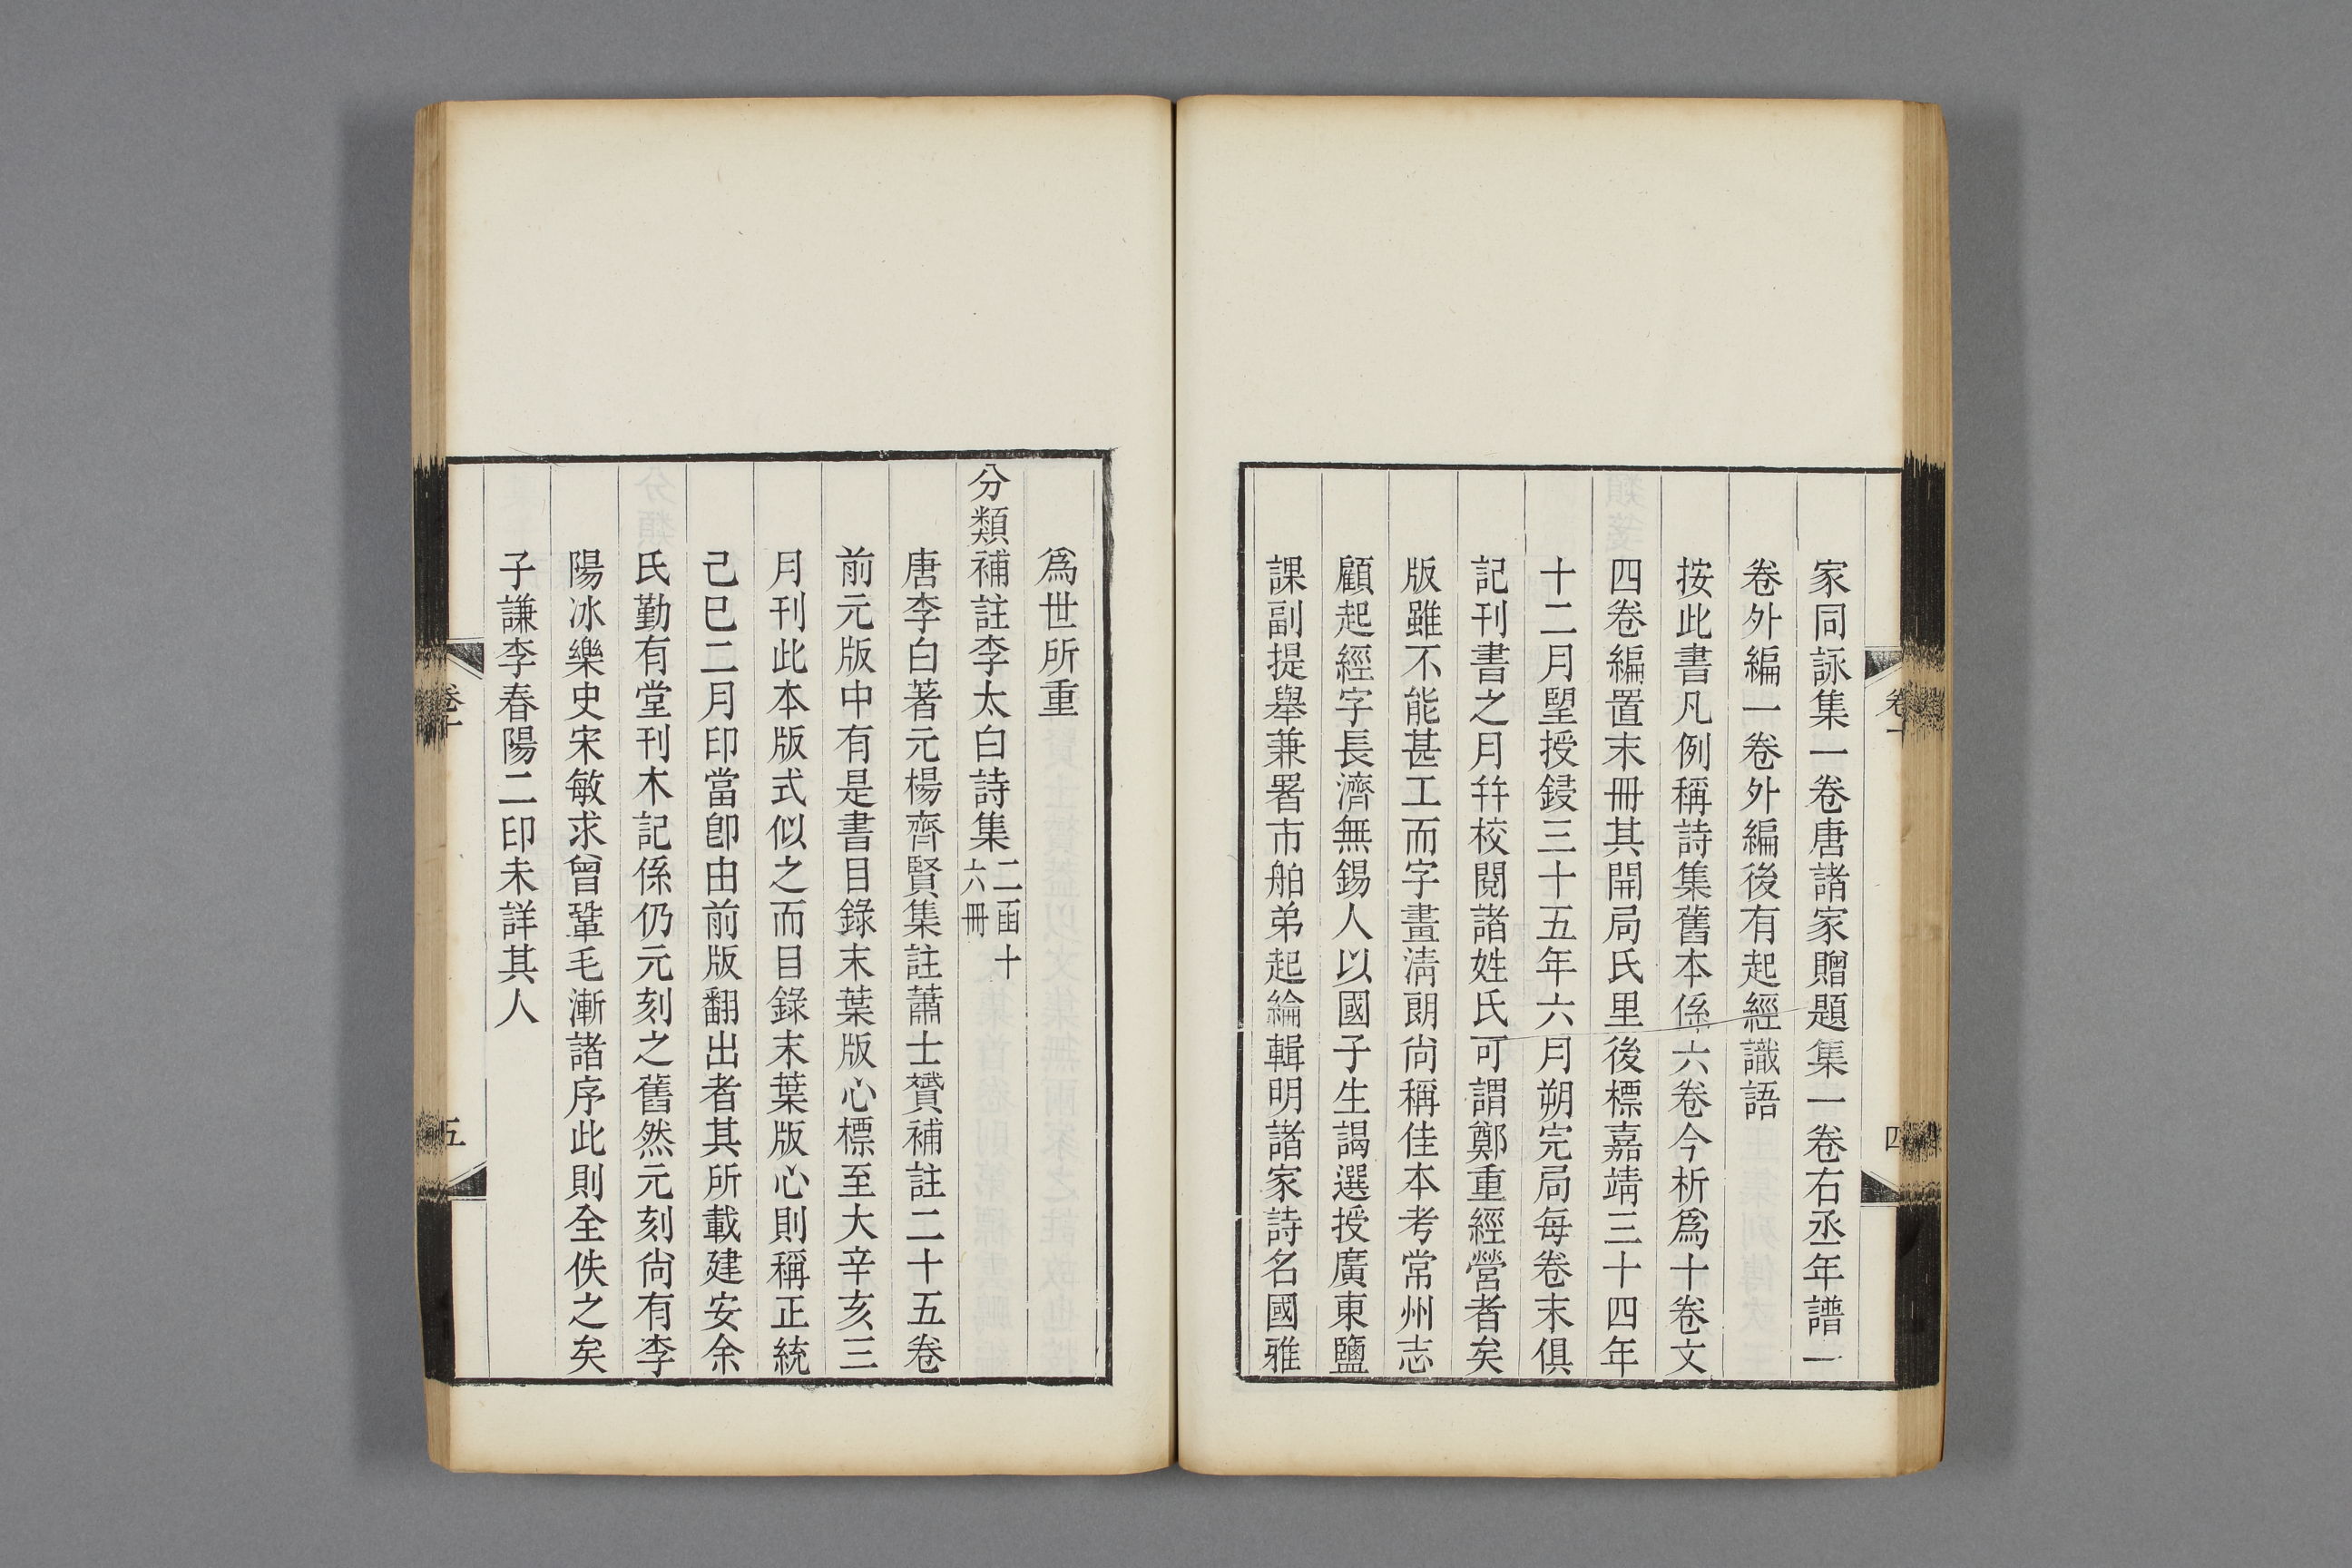 家同詠集一卷唐諸家贈題集一卷右丞年譜一
卷外編一卷外編後有起經識語
按此書凡例稱詩集舊本係六卷今析爲十卷文
四卷編置末冊其開局氏里後標嘉靖三十四年
十二月朢授鋟三十五年六月朔完局每卷末俱
記刊書之月并校閱諸姓氏可謂鄭重經營者矣
版雖不能甚工而字畫淸朗尙稱佳本考常州志
顧起經字長濟無錫人以國子生謁選授廣東鹽
課副提舉兼署市舶弟起綸輯明諸家詩名國雅
卷十
四
爲世所重
分類補註李太白詩集二函十六冊
唐李白著元楊齊賢集註蕭士贇補註二十五卷
前元版中有是書目錄末葉版心標至大辛亥三
月刊此本版式似之而目錄末葉版心則稱正統
己巳二月印當卽由前版翻出者其所載建安余
氏勤有堂刊木記係仍元刻之舊然元刻尙有李
陽冰樂史宋敏求曾鞏毛漸諸序此則全佚之矣
子謙李春陽二印未詳其人
卷十
五